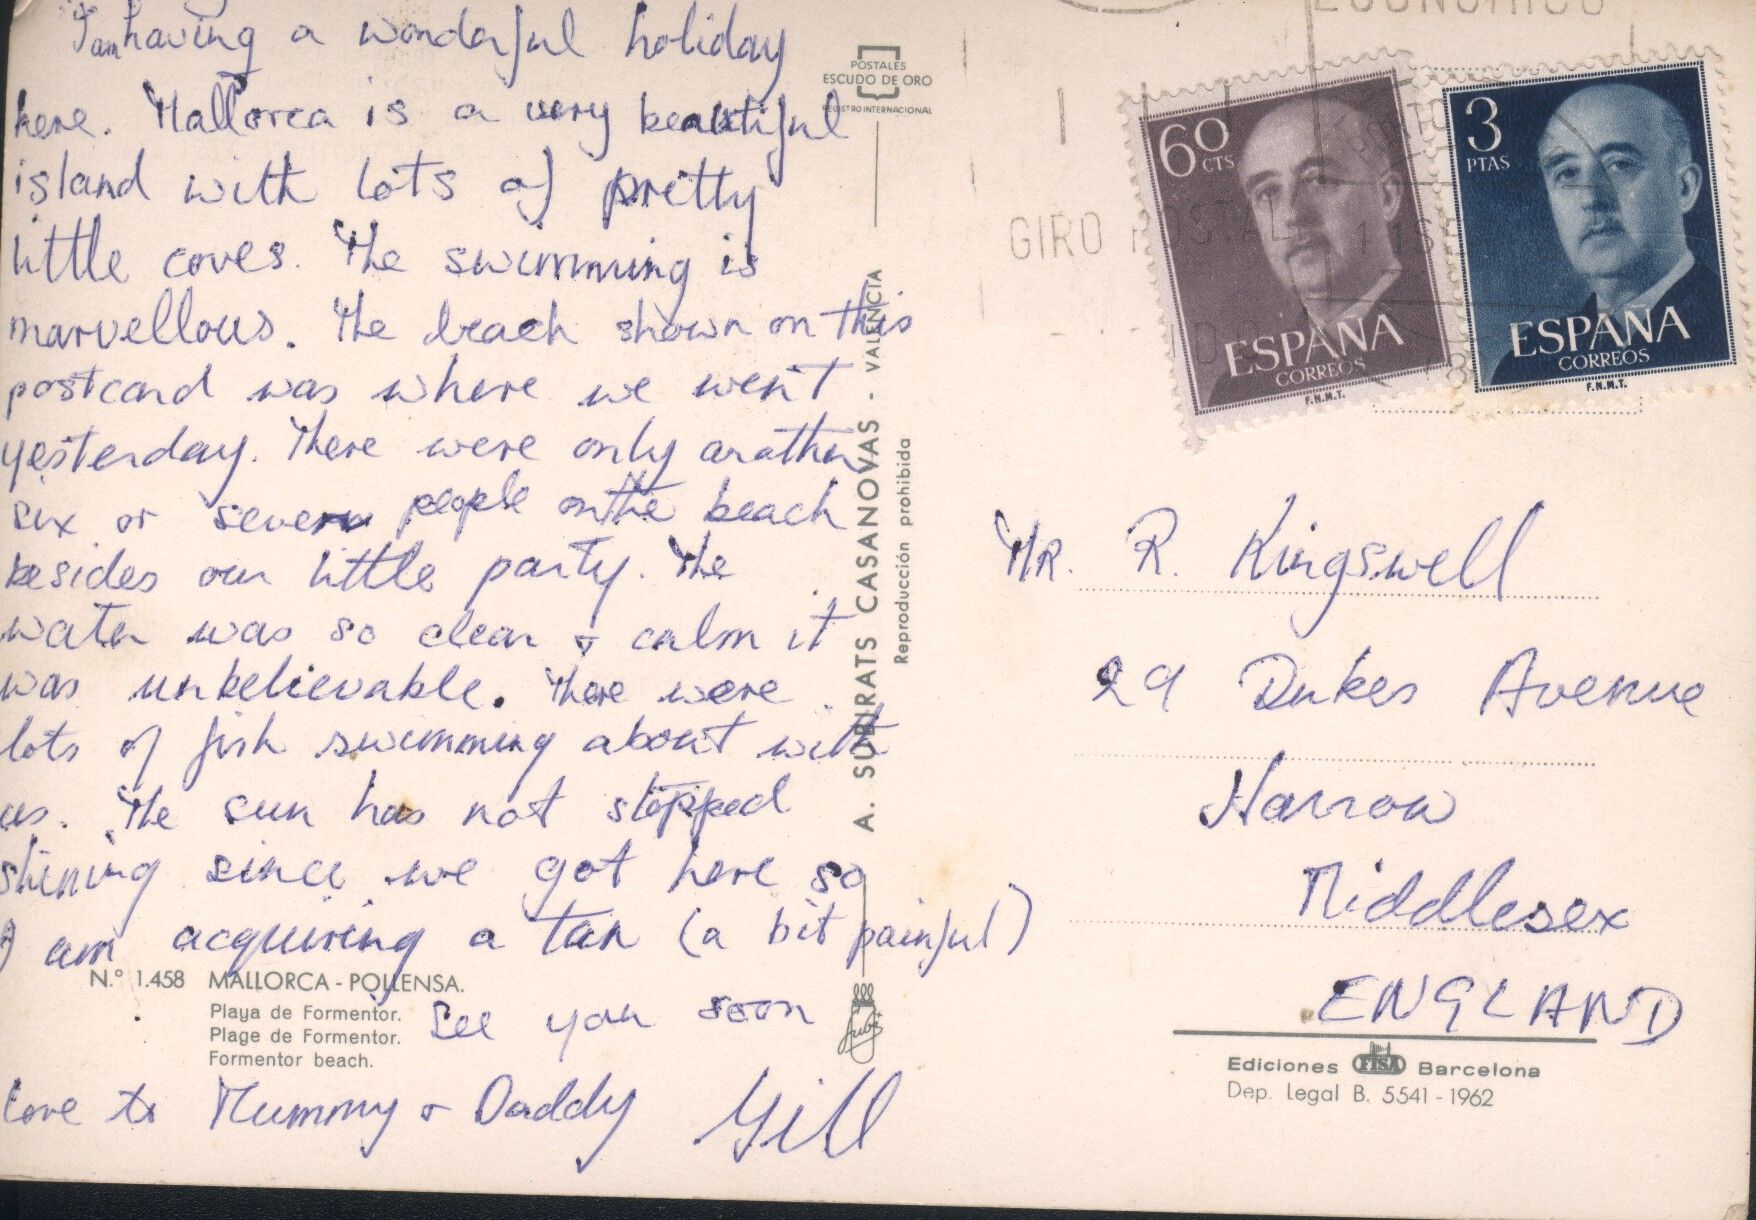 I am having a wonderful holiday
here. Mallorca is a very beautiful
island with lots of pretty
little coves. The swimming is
marvellous. The beach shown on this
postcard was where we went
yesterday. There were only another
six or seven people on the beach
besides our little party. The
water was so clear & calm it
was unbelievable. There were
lots of fish swimming about with
us. The sun has not stopped
shining since we got here so
I am acquiring a tan (a bit painful)
See you soon
Love to Mummy & Daddy Gill
N.º 1.458 MALLORCA - POLLENSA.
Playa de Formentor.
Plage de Formentor.
Formentor beach.
POSTALES
ESCUDO DE ORO
REGISTRO INTERNACIONAL
A. SUBIRATS CASANOVAS - VALENCIA
Reproducción prohibida
ECONOMICO
GIRO POSTAL
60 CTS
ESPAÑA
CORREOS
F.N.M.T.
3 PTAS
ESPAÑA
CORREOS
F.N.M.T.
MR. R. Kingswell
29 Dukes Avenue
Harrow
Middlesex
ENGLAND
Ediciones FISA Barcelona
Dep. Legal B. 5541 - 1962